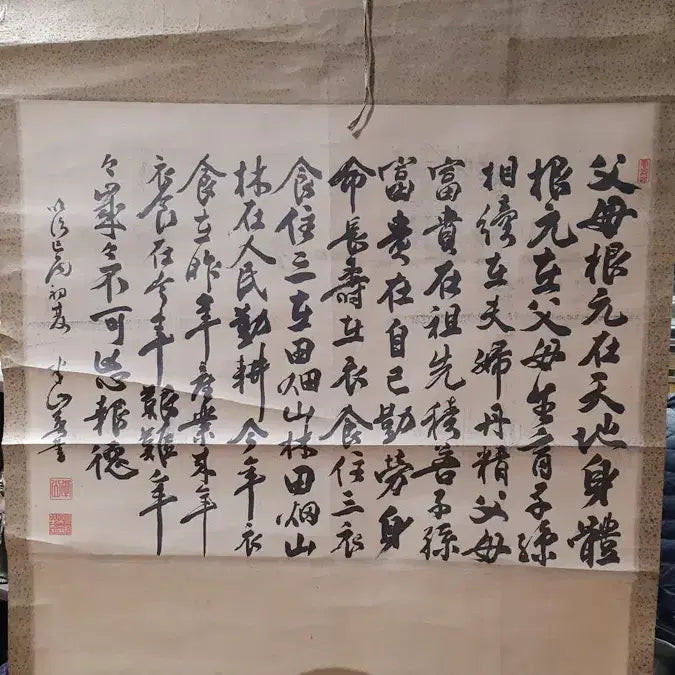 父母根元在天地身體
根元在父母生育子孫
相續在夫婦丹精父母
富貴在祖先積善子孫
富貴在自己勤勞身
命長壽在衣食住三衣
食住三在田畑山林田畑山
林在人民勤耕今年衣
食在昨年産業来年
衣食在今年艱難年
々歳々不可忘報德
明治己酉初夏